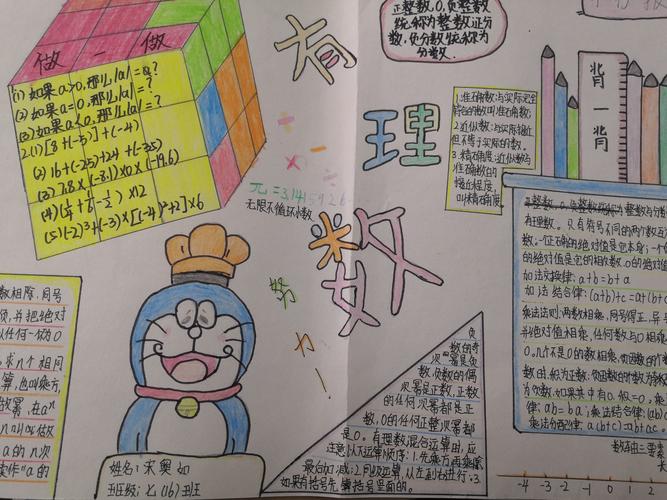 做一做
(1) 如果a>0,那么|a|=a?
(2) 如果a=0,那么|a|=?
(3) 如果a<0,那么|a|=?
2.(1)[8+(-5)]+(-4)
(2) 16+(-25)+24+(-35)
(3) 7.8×(-3.1)×0×(-19.6)
(5)(-2)³+(-3)×[(-4)²+2]×6
有理数
正整数、0、负整数
统称为整数,正分
数、负分数统称为
分数.
π=3.1415926
无限不循环小数
努力!
1.准确数:与实际完全
符合的数叫准确数;
2.近似数:与实际接近
但不等于实际的数.
3.精确度:近似数与
准确数的
接近程度,
叫精确度.
背一背
有理数. 只有符号不同的两个数互为
数,一个正确的绝对值是它本身;一个
的绝对值是它的相反数.0的绝对值
加法交换律:a+b=b+a
加法结合律:(a+b)+c=a+(b+
乘法法则:两数相乘,同号得正,异号
并绝对值相乘,任何数与0相乘
0,几个不是0的数相乘,负因数的个数
为负数.如果其中有0,积=0.乘
律:ab=ba;乘法结合律:(ab)
乘法分配律:a(b+c)=ab+ac
数轴三要素
-4 -3 -2 -1 0 1 2
数相除,同号
,并把绝对
以任何一个为0
求n个相同
算,也叫乘方,
做幂,在aⁿ
a的n次
读作"a的
姓名:宋奥如
班级:七(16)班
负
数的奇
次幂是负
数,负数的偶
次幂是正数,正数
的任何次幂都是正
数,0的任何正整次幂都
是0.有理数混合运算由,应
注意以下运算顺序:1.先乘方再乘除
最后加减;2.同级运算,从左到右进行;3.
如果有括号先算括号里面的.